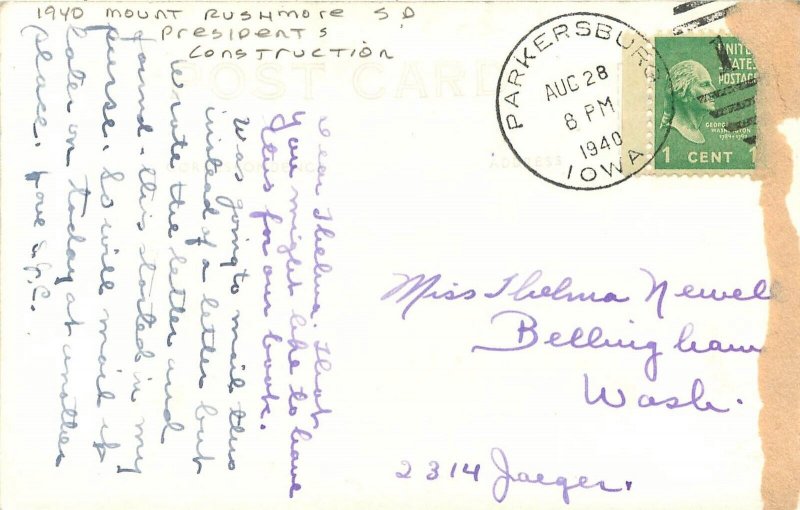 1940 MOUNT RUSHMORE S D
PRESIDENTS
CONSTRUCTION
POST CARD
PARKERSBURG
AUG 28
8 PM
1940
IOWA
UNITED
STATES
POSTAGE
GEORGE
WASHINGTON
1 CENT 1
Dear Thelma: Thot
you might like to have
this for our book.
Was going to mail this
instead of a letter but
wrote the letter and
found this started in my
purse. So will mail it
later on today at another
place. Love
Miss Thelma Newell
Bellingham
Wash.
2314 Jaeger.